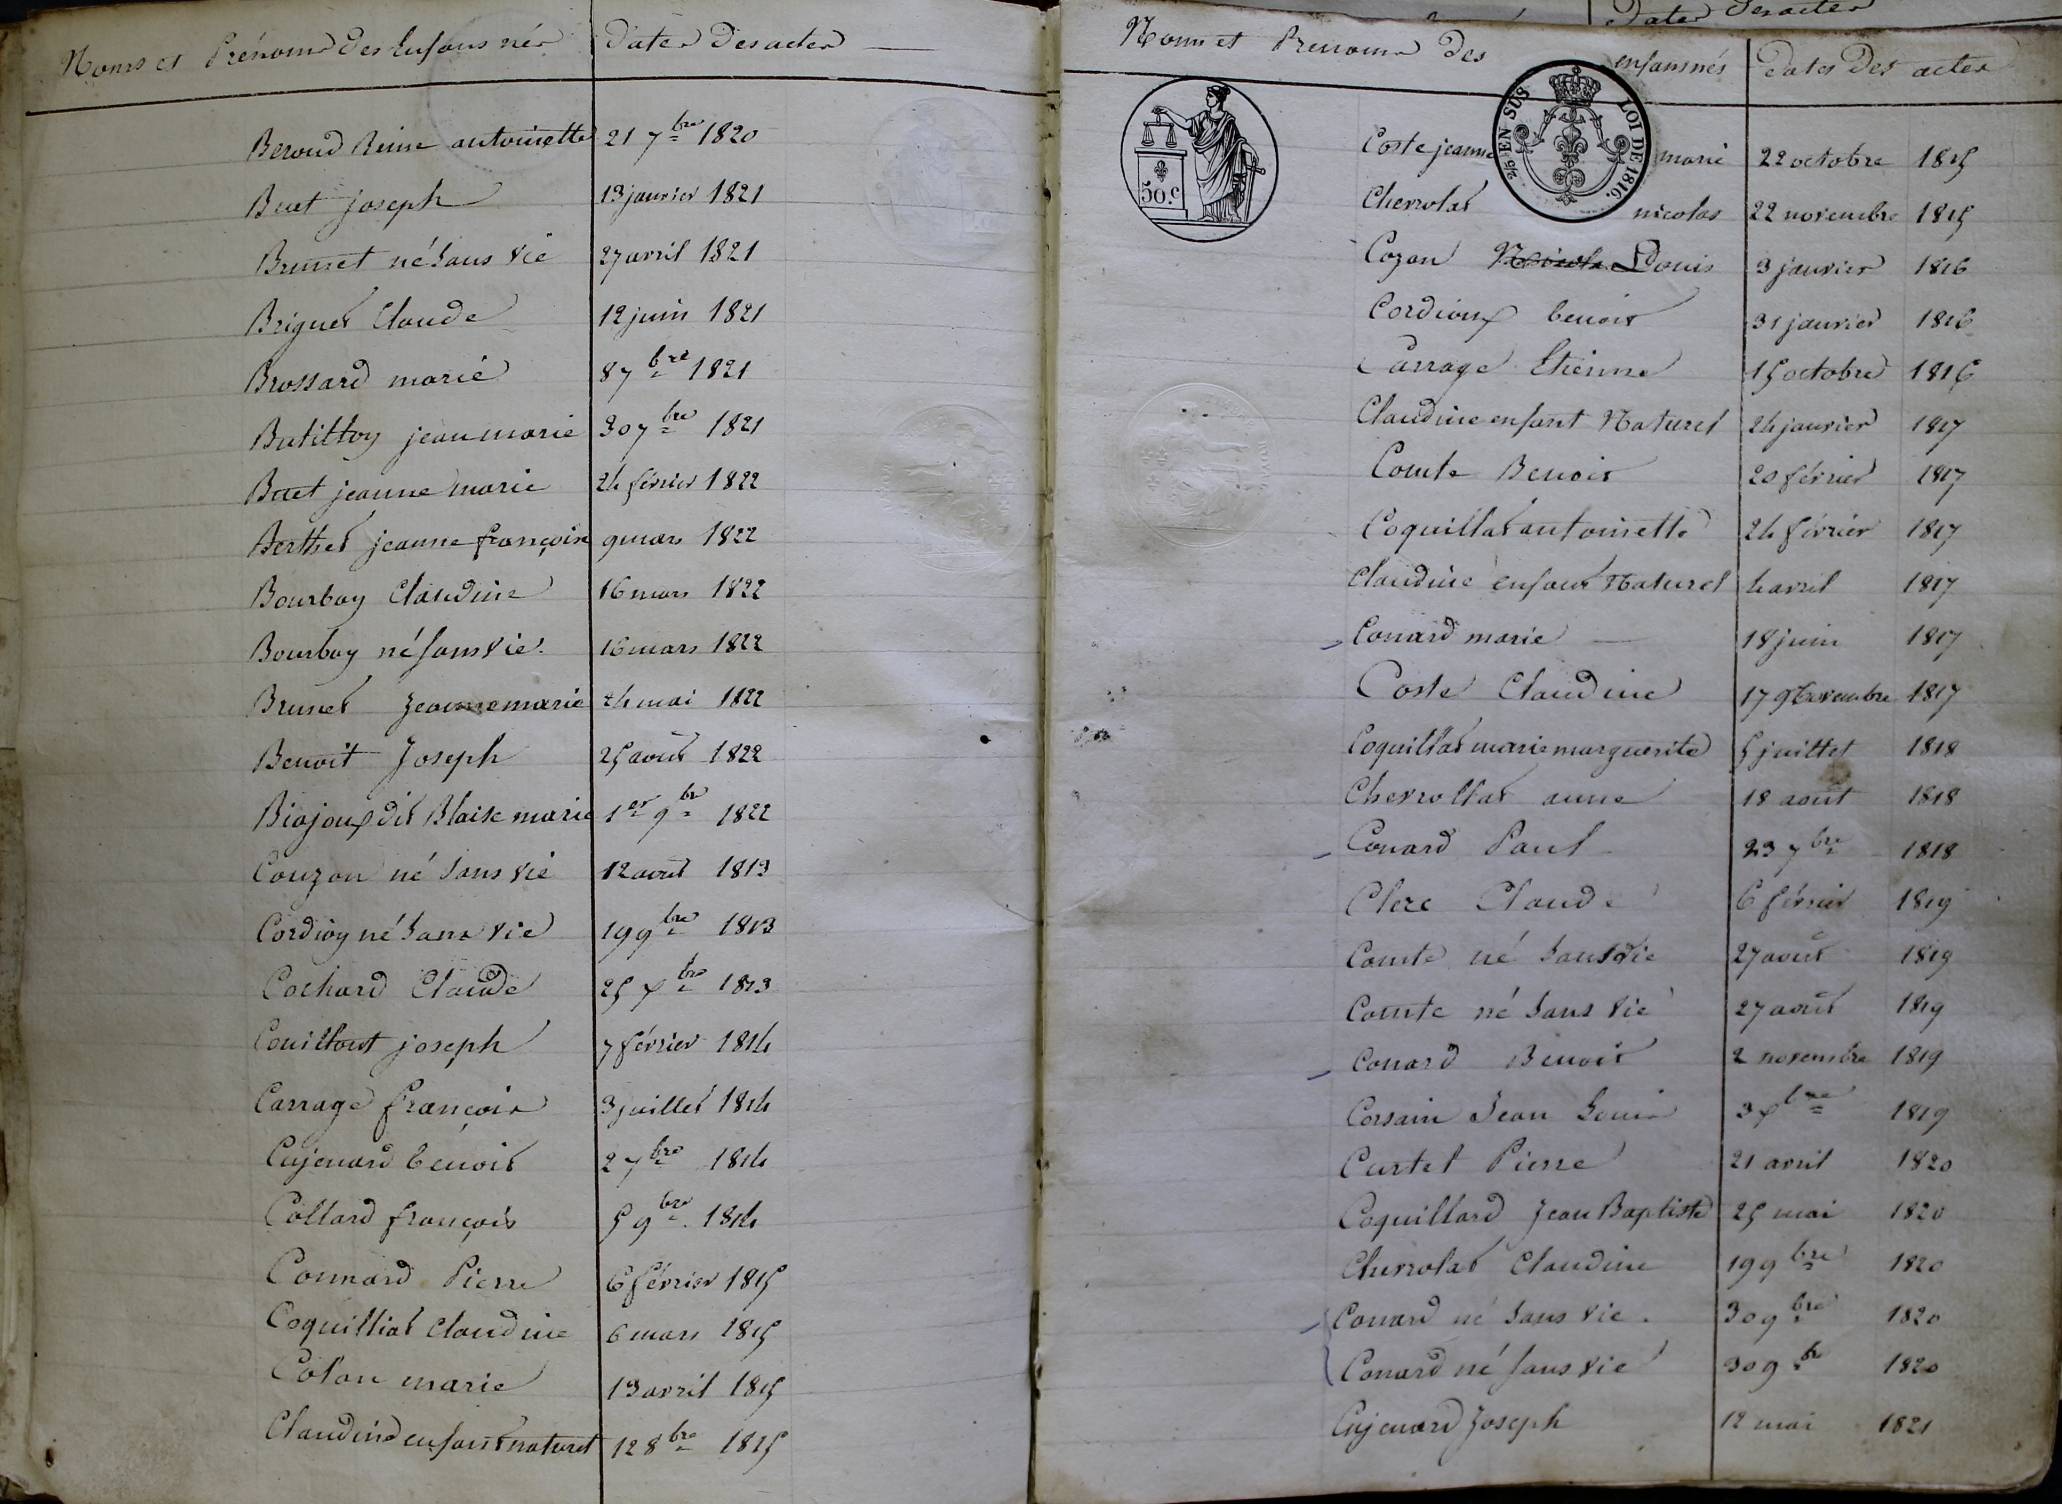 Noms et Prénoms des Enfans nés | Dates des actes
Beroud Reine antoinette 21 7bre 1820
Buet joseph 13 janvier 1821
Brunet né Sans vie 27 avril 1821
Briguet Claude 12 juin 1821
Brossard marie 8 7bre 1821
Batilloy jean marie 30 7bre 1821
Buet jeanne marie 24 février 1822
Berthet jeanne françoise 9 mars 1822
Bourboy Claudine 16 mars 1822
Bourboy né Sans vie 16 mars 1822
Brunet Jeanne marie 24 mai 1822
Benoit Joseph 25 août 1822
Biajoux dit Blaise marie 1er 9bre 1822
Couzon né Sans vie 12 avril 1813
Cordioy né Sans vie 19 9bre 1813
Cochard Claude 25 Xbre 1813
joseph 7 février 1814
Carrage françois 3 juillet 1814
Cujenard benoit 2 7bre 1814
Collard françois 5 9bre 1814
Connard Pierre 6 février 1815
Coquilliat Claudine 6 mars 1815
Colon marie 13 avril 1815
Claudine enfant naturel 12 8bre 1815
Dates des actes
Noms et Prenoms des enfans nés | Dates des actes
50 c.
2/5 EN SUS LOI DE 1816.
Coste jeanne marie 22 octobre 1815
Chevrolat nicolas 22 novembre 1815
Cozon Louis 3 janvier 1816
Cordioux benoit 31 janvier 1816
Carrage Etienne 15 octobre 1816
Claudine enfant Naturel 24 janvier 1817
Comte Benoit 20 février 1817
Coquillat antoinette 24 février 1817
Claudine enfant Naturel 4 avril 1817
Conard marie 18 juin 1817
Coste Claudine 17 novembre 1817
Coquillat marie marguerite 5 juillet 1818
Chevrollat anne 18 août 1818
Conard Paul 23 7bre 1818
Clerc Claude 6 février 1819
Comte né Sans vie 27 août 1819
Comte né Sans vie 27 août 1819
Conard Benoit 2 novembre 1819
Corsain Jean Louis 3 Xbre 1819
Curtet Pierre 21 avril 1820
Coquillard Jean Baptiste 25 mai 1820
Chevrolat Claudine 19 9bre 1820
Conard né Sans vie. 30 9bre 1820
Conard né Sans vie 30 9bre 1820
Cujenard Joseph 12 mai 1821